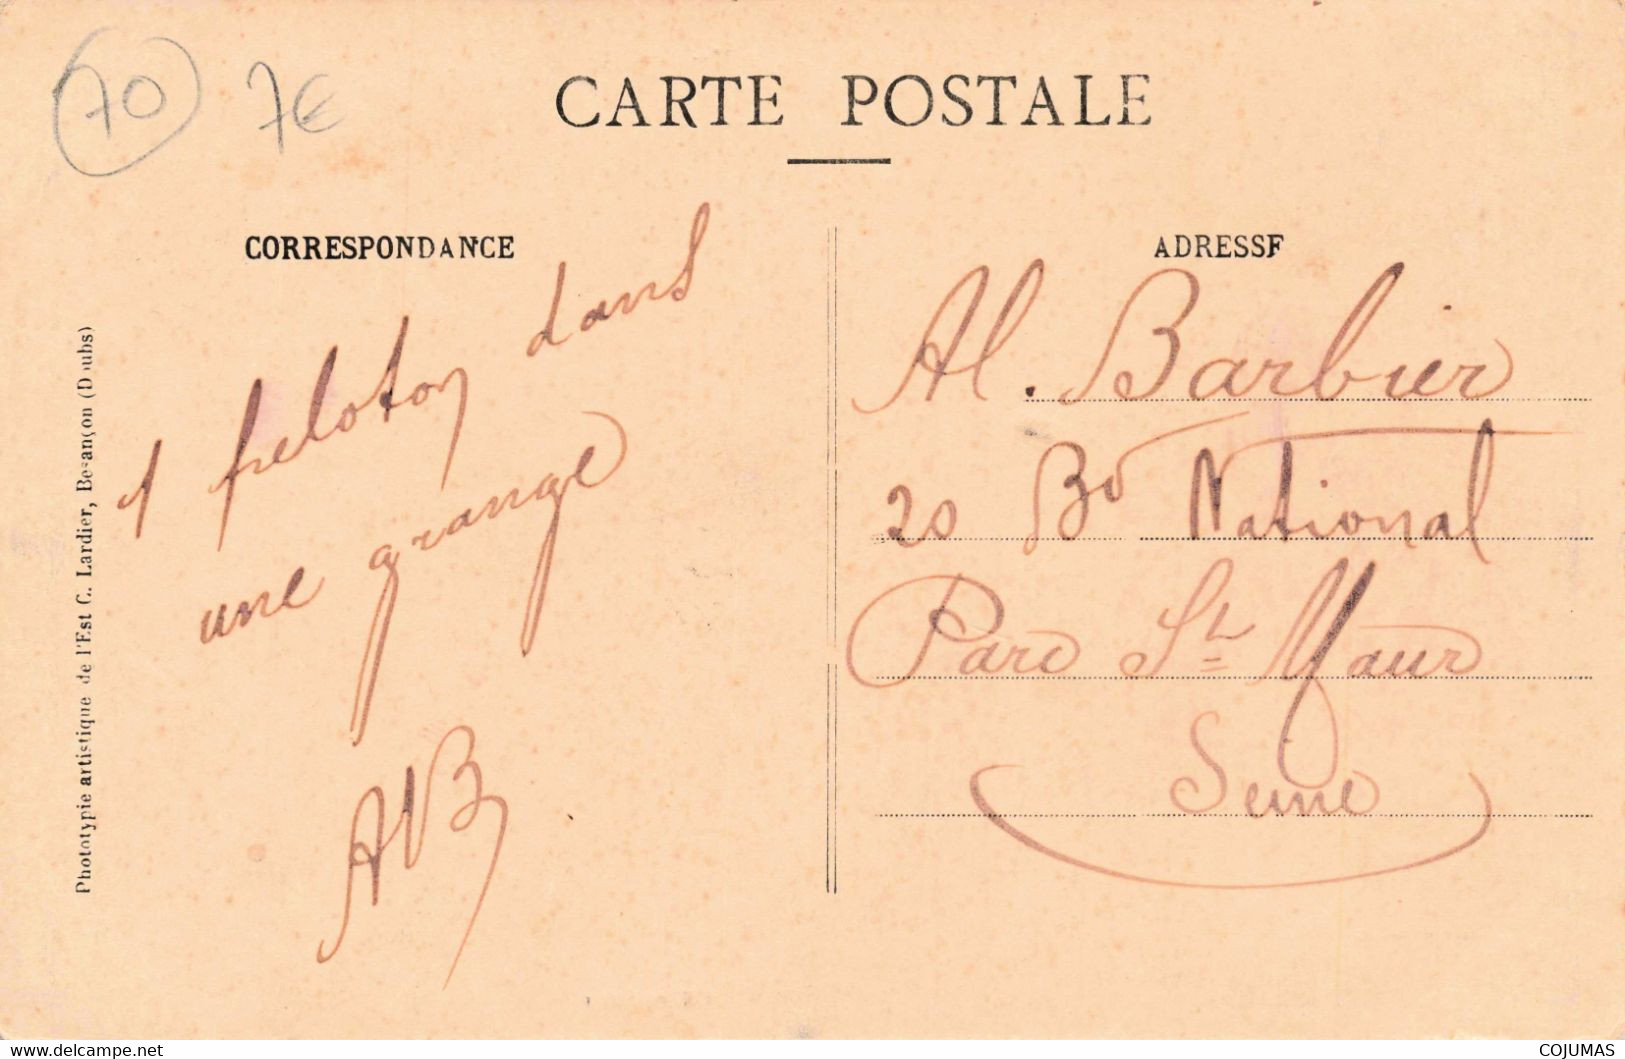 70 7€
CARTE POSTALE
CORRESPONDANCE
ADRESSE
1 peloton dans
une grange
AB
Al. Barbier
20 Bd National
Parc St Maur
Seine
Phototypie artistique de l'Est C. Lardier, Besançon (Doubs)
www.delcampe.net
COJUMAS